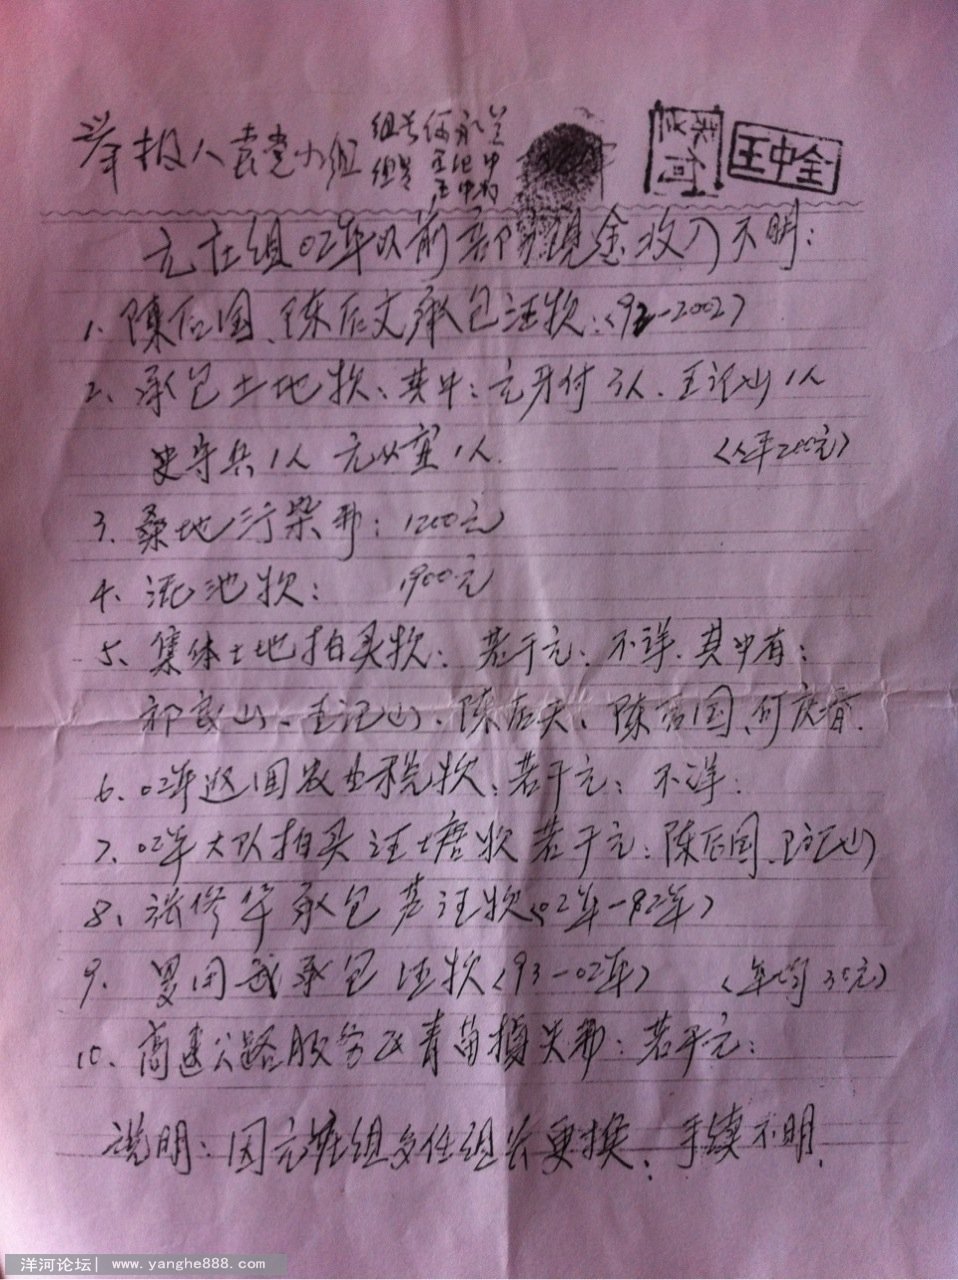 举报人袁党小组 组长 何永兰
组长 王记中
王中全
王中全
元庄组02年以前部份现金收入不明:
1、陳后国、陈后文承包汪款:(92-2002)
2、承包土地款:其中:元付 3人、王记山1人
史守兵1人 元从宽1人. (全年200元)
3、桑地污染费: 1200元
4、泥池款: 1900元
5、集体土地拍卖款:若干元:不详.其中有:
祁良山、王记山、陈后天、陈后国、何庆春.
6、02年返回农业税款:若干元:不详:
7、02年大队拍卖汪塘款若干元:陈后国、王记山
8、张修华承包芦汪款(02年-92年)
9、承包汪款(93-02年) (年均30元)
10、高速公路服务区青苗損失费:若干元:
说明:因元庄组多任组长更换、手续不明.
洋河论坛| www.yanghe888.com